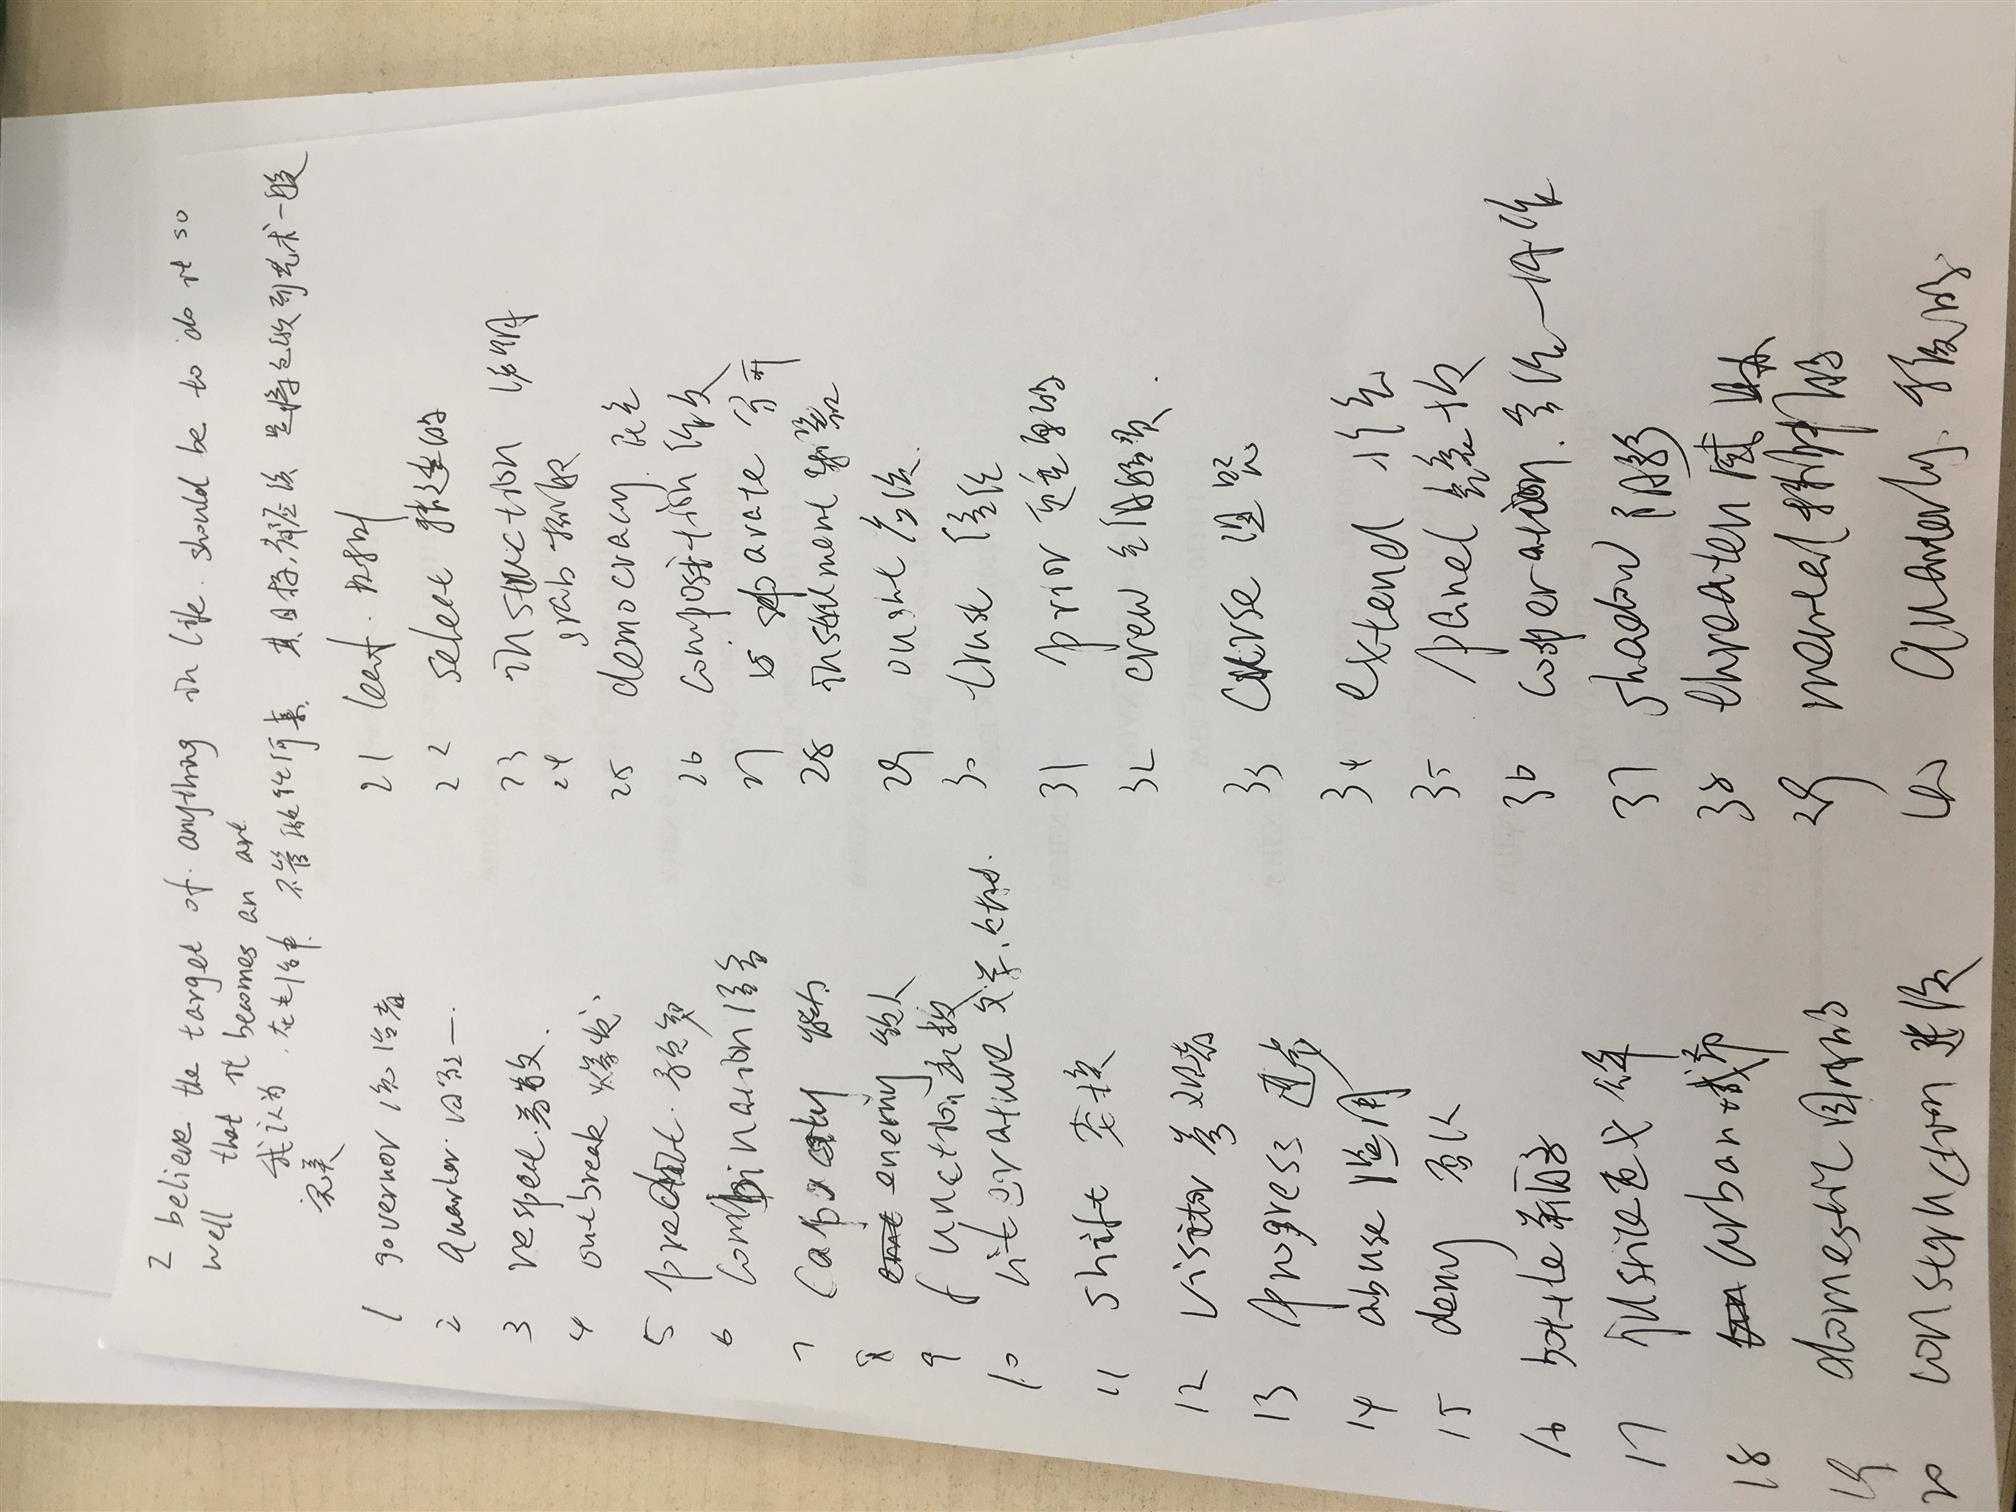 I believe the target of anything in life should be to do it so
well that it becomes an art
我认为.在生活中.不管做任何事.其目标都应该是将它做到艺术一般
完美
1 governor 统治者
2 quarter 四分之一.
3 respect.尊敬.
4 outbreak 爆发、
5 predict.预知
6 combination 结合
7 能力
8 enemy 敌人
9 function 函数
10 literature 文学.
11 shift 转换
12 visitor 参观者
13 progress 进步
14 abuse 滥用
15 deny 否认
16 bottle 瓶子
17 justice 正义
18 urban 城市
19 domestic 国内的
20 construction 建设
21 leaf.树叶
22 select 挑选的
23 instruction 说明
24 grab 抓取
25 democracy.民主
26 composition 作文
27 separate 分开
28 instrument
29 ought 应该.
30 trust 信任
31 prior 更重要的
32 crew 全体船员.
33 curse 诅咒
34 extend
35 panel 镶板
36 cooperation.合作
37 shadow 阴影
38 threaten 威胁
39 mental 精神的
40 quarterly.季度的.